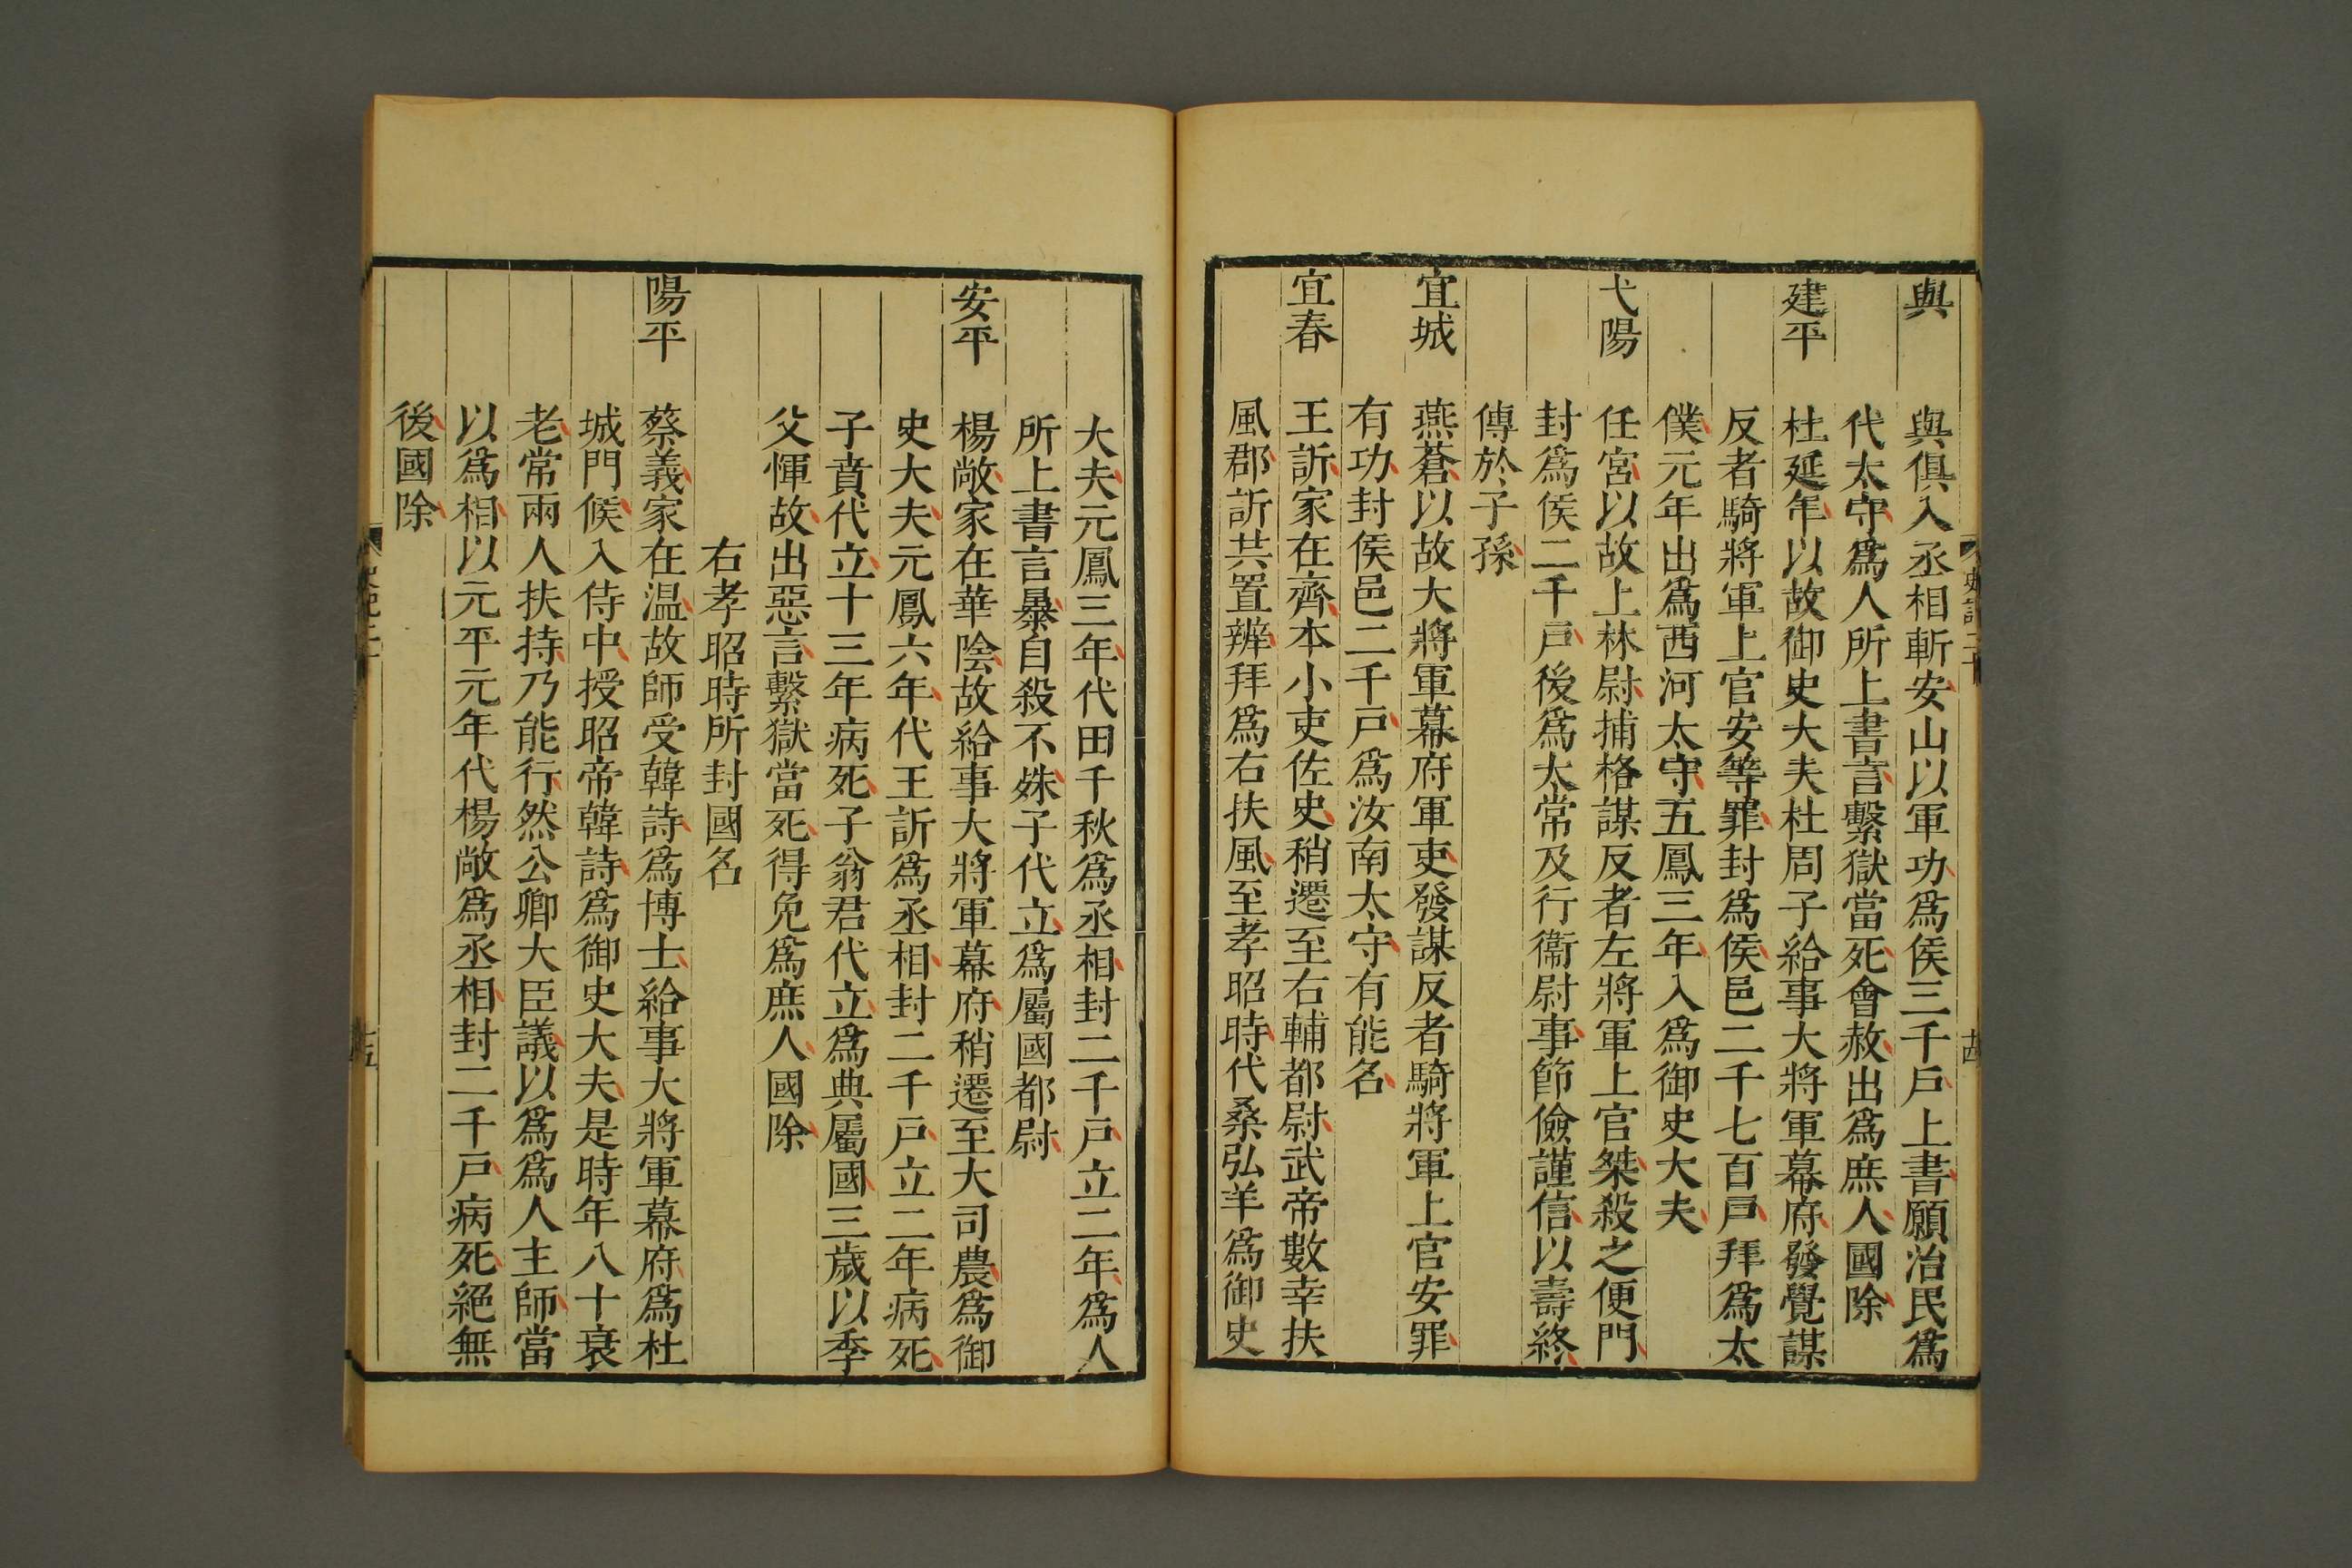 與 與俱入丞相斬安山以軍功爲侯三千戸上書願治民爲
代太守爲人所上書言繫獄當死會赦出爲庶人國除
建平 杜延年以故御史大夫杜周子給事大將軍幕府發覺謀
反者騎將軍上官安等罪封爲侯邑二千七百戸拜爲太
僕元年出爲西河太守五鳳三年入爲御史大夫
弋陽 任宮以故上林尉捕格謀反者左將軍上官桀殺之便門
封爲侯二千戸後爲太常及行衞尉事節儉謹信以壽終
傳於子孫
宜城 燕蒼以故大將軍幕府軍吏發謀反者騎將軍上官安罪
有功封侯邑二千戸爲汝南太守有能名
宜春 王訢家在齊本小吏佐史稍遷至右輔都尉武帝數幸扶
風郡訢共置辨拜爲右扶風至孝昭時代桑弘羊爲御史
大夫元鳳三年代田千秋爲丞相封二千戸立二年爲人
所上書言暴自殺不殊子代立爲屬國都尉
安平 楊敞家在華陰故給事大將軍幕府稍遷至大司農爲御
史大夫元鳳六年代王訢爲丞相封二千戸立二年病死
子賁代立十三年病死子翁君代立爲典屬國三歲以季
父惲故出惡言繫獄當死得免爲庶人國除
右孝昭時所封國名
陽平 蔡義家在温故師受韓詩爲博士給事大將軍幕府爲杜
城門候入侍中授昭帝韓詩爲御史大夫是時年八十衰
老常兩人扶持乃能行然公卿大臣議以爲爲人主師當
以爲相以元平元年代楊敞爲丞相封二千戸病死絕無
後國除